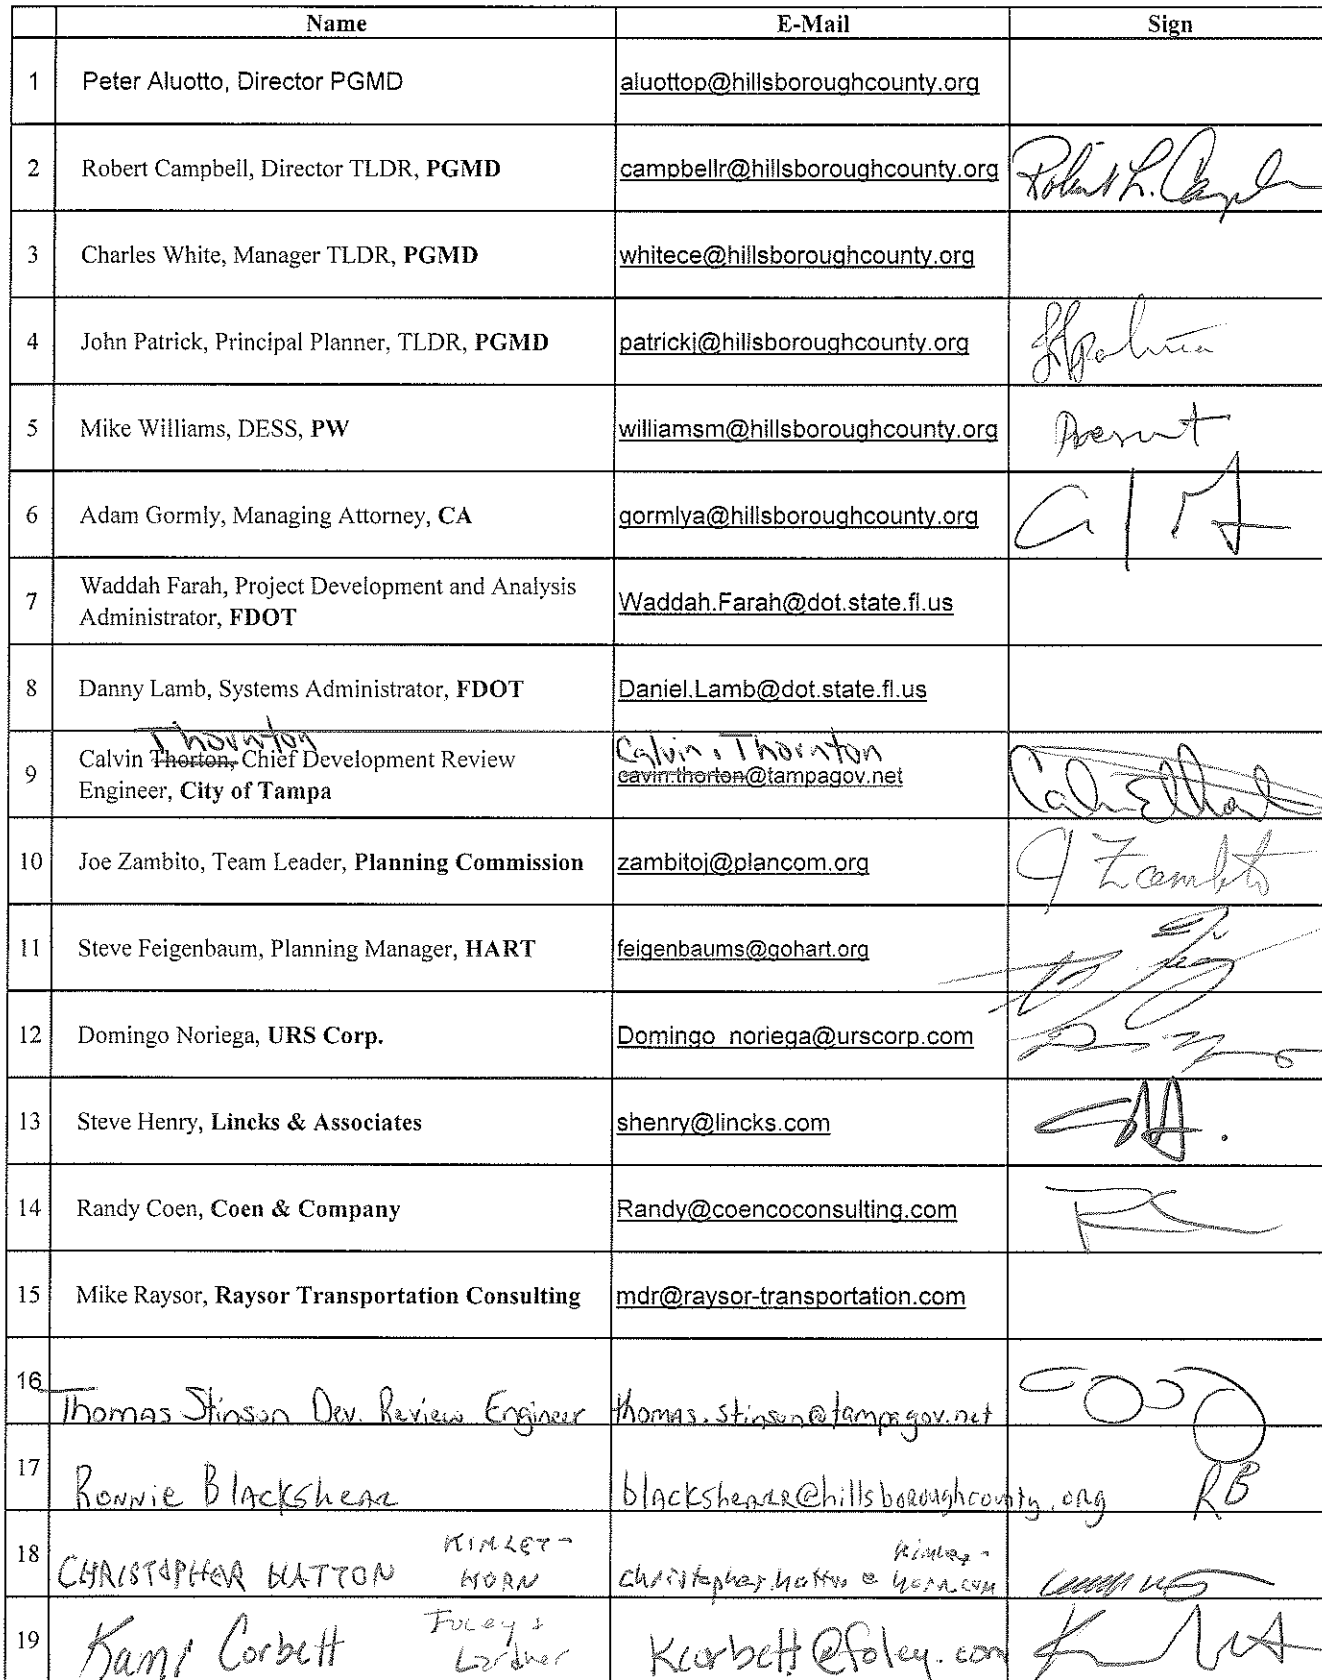 Name E-Mail Sign
1 Peter Aluotto, Director PGMD aluottop@hillsboroughcounty.org
2 Robert Campbell, Director TLDR, PGMD campbellr@hillsboroughcounty.org Robert L. Campbell
3 Charles White, Manager TLDR, PGMD whitece@hillsboroughcounty.org
4 John Patrick, Principal Planner, TLDR, PGMD patrickj@hillsboroughcounty.org
5 Mike Williams, DESS, PW williamsm@hillsboroughcounty.org Present
6 Adam Gormly, Managing Attorney, CA gormlya@hillsboroughcounty.org
7 Waddah Farah, Project Development and Analysis
Administrator, FDOT Waddah.Farah@dot.state.fl.us
8 Danny Lamb, Systems Administrator, FDOT Daniel.Lamb@dot.state.fl.us
Thornton Calvin.Thornton
9 Calvin Thorton, Chief Development Review cavin.thorton@tampagov.net
Engineer, City of Tampa
10 Joe Zambito, Team Leader, Planning Commission zambitoj@plancom.org J Zambito
11 Steve Feigenbaum, Planning Manager, HART feigenbaums@gohart.org
12 Domingo Noriega, URS Corp. Domingo_noriega@urscorp.com
13 Steve Henry, Lincks & Associates shenry@lincks.com
14 Randy Coen, Coen & Company Randy@coencoconsulting.com
15 Mike Raysor, Raysor Transportation Consulting mdr@raysor-transportation.com
16 Thomas Stinson Dev. Review Engineer thomas.stinson@tampagov.net
17 Ronnie Blackshear blackshearr@hillsboroughcounty.org RB
18 CHRISTOPHER HATTON KIMLEY-HORN christopher.hatton@kimley-horn.com
19 Kami Corbett Foley & Lardner Kcorbett@foley.com